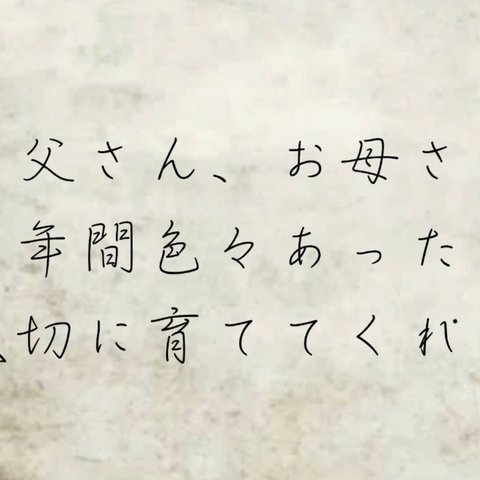 父さん、お母さ
年間色々あった
切に育ててくれ